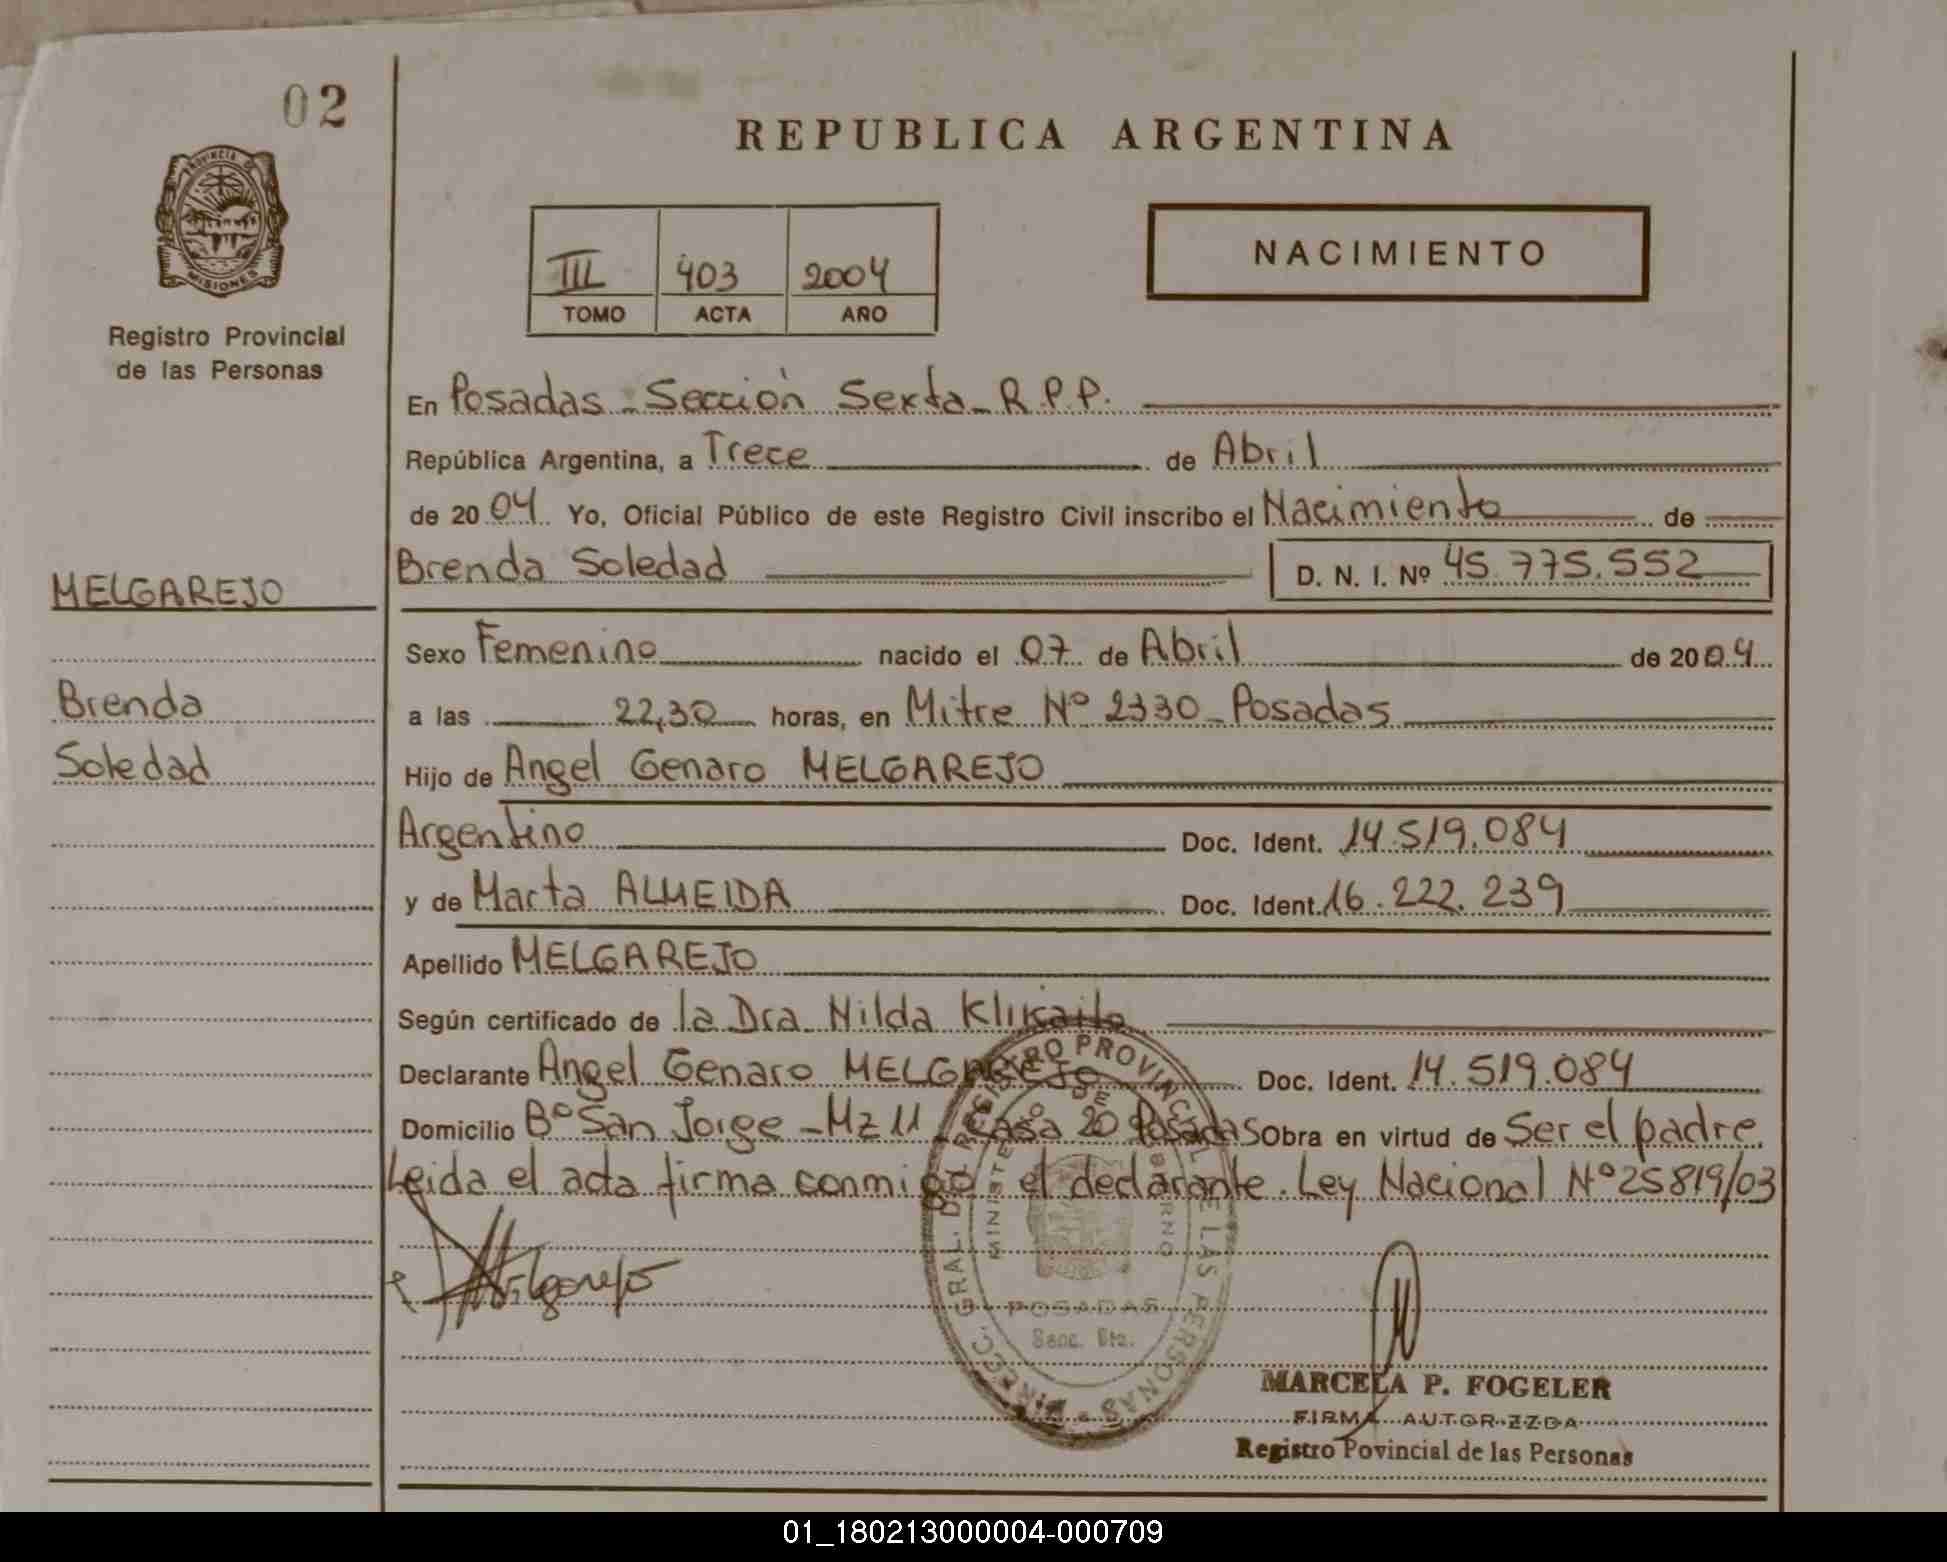 02
PROVINCIA DE
MISIONES
Registro Provincial
de las Personas
MELGAREJO
Brenda
Soledad
REPUBLICA ARGENTINA
III 403 2004
TOMO ACTA AÑO
NACIMIENTO
En Posadas - Sección Sexta - R.P.P.
República Argentina, a Trece de Abril
de 2004 Yo, Oficial Público de este Registro Civil inscribo el Nacimiento de
Brenda Soledad D. N. I. Nº 45.775.552
Sexo Femenino nacido el 07 de Abril de 2004
a las 22,30 horas, en Mitre Nº 2330 - Posadas
Hijo de Angel Genaro MELGAREJO
Argentino Doc. Ident. 14.519.084
y de Marta ALMEIDA Doc. Ident. 16.222.239
Apellido MELGAREJO
Según certificado de la Dra Nilda
Declarante Angel Genaro MELGAREJO Doc. Ident. 14.519.084
Domicilio Bº San Jorge - Mz 11 - Casa 20 Posadas Obra en virtud de Ser el padre.
Leida el acta firma conmigo el declarante. Ley Nacional Nº 25819/03
DIRECC. GRAL. DEL REGISTRO PROVINCIAL DE LAS PERSONAS
MINISTERIO DE GOBIERNO
POSADAS
Secc. 6ta.
Melgarejo
MARCELA P. FOGELER
FIRMA AUTORIZZDA
Registro Povincial de las Personas
01_180213000004-000709